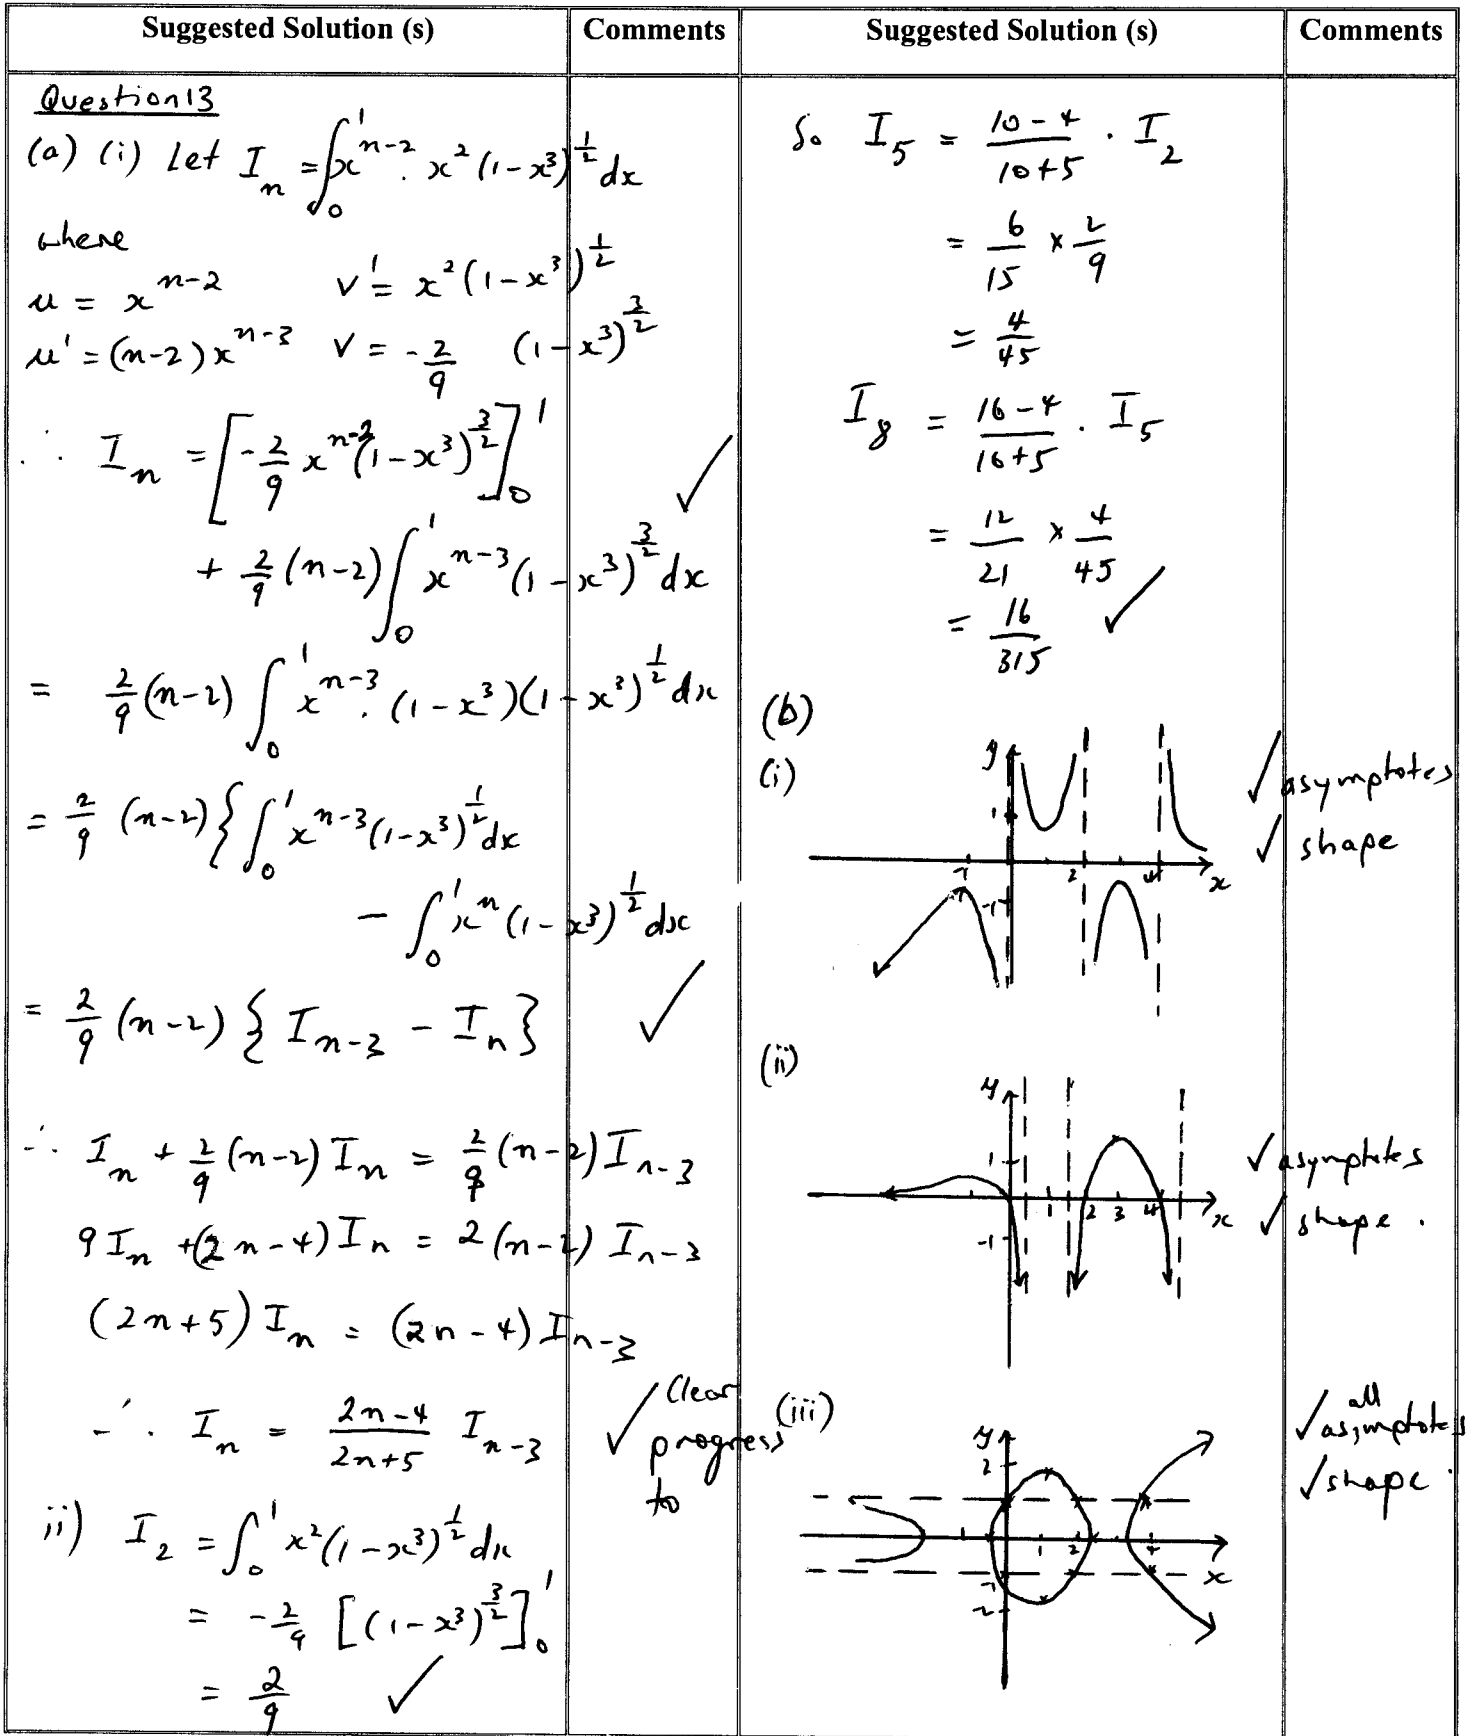 Suggested Solution (s)
Comments
Suggested Solution (s)
Comments
Question 13
(a) (i) Let I_n = ∫_0^1 x^{n-2} . x^2 (1-x^3)^{1/2} dx
where
u = x^{n-2} v' = x^2 (1-x^3)^{1/2}
u' = (n-2)x^{n-3} v = -2/9 (1-x^3)^{3/2}
∴ I_n = [-2/9 x^{n-2} (1-x^3)^{3/2}]_0^1 ✓
+ 2/9 (n-2) ∫_0^1 x^{n-3} (1-x^3)^{3/2} dx
= 2/9 (n-2) ∫_0^1 x^{n-3} . (1-x^3)(1-x^3)^{1/2} dx
= 2/9 (n-2) { ∫_0^1 x^{n-3} (1-x^3)^{1/2} dx
- ∫_0^1 x^n (1-x^3)^{1/2} dx
= 2/9 (n-2) { I_{n-3} - I_n } ✓
∴ I_n + 2/9 (n-2) I_n = 2/9 (n-2) I_{n-3}
9 I_n + (2n-4) I_n = 2(n-2) I_{n-3}
(2n+5) I_n = (2n-4) I_{n-3}
∴ I_n = (2n-4)/(2n+5) I_{n-3}
✓ Clear
progress
to
ii) I_2 = ∫_0^1 x^2 (1-x^3)^{1/2} dx
= -2/9 [(1-x^3)^{3/2}]_0^1
= 2/9 ✓
So I_5 = (10-4)/(10+5) . I_2
= 6/15 × 2/9
= 4/45
I_8 = (16-4)/(16+5) . I_5
= 12/21 × 4/45
= 16/315 ✓
(b)
(i)
y
1
-1
2
4
x
-1
✓ asymptotes
✓ shape
(ii)
y
1
1
2
3
4
x
-1
✓ asymptotes
✓ shape .
(iii)
y
2
1
2
4
x
-1
-2
✓ all
asymptotes
✓ shape .